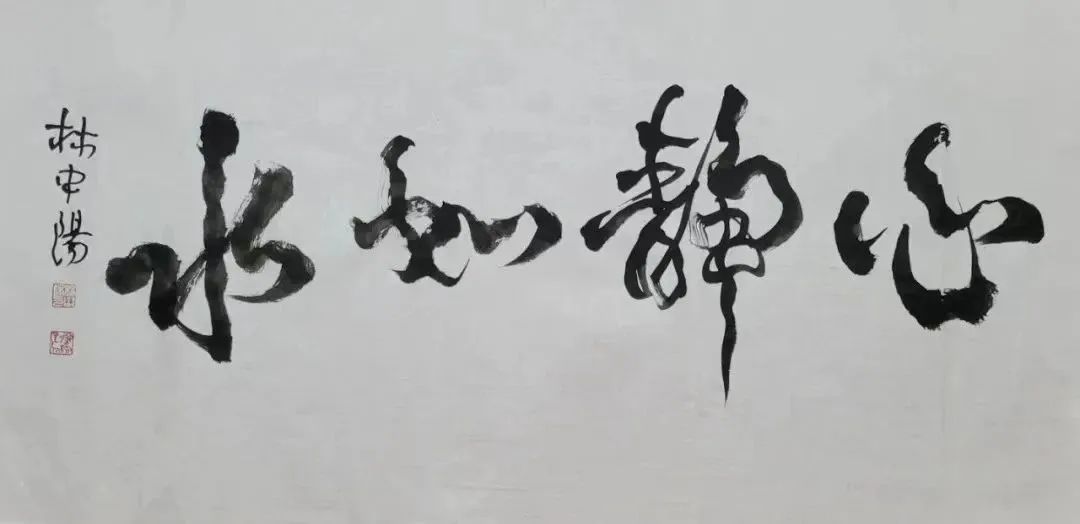 心静如水
林中陽